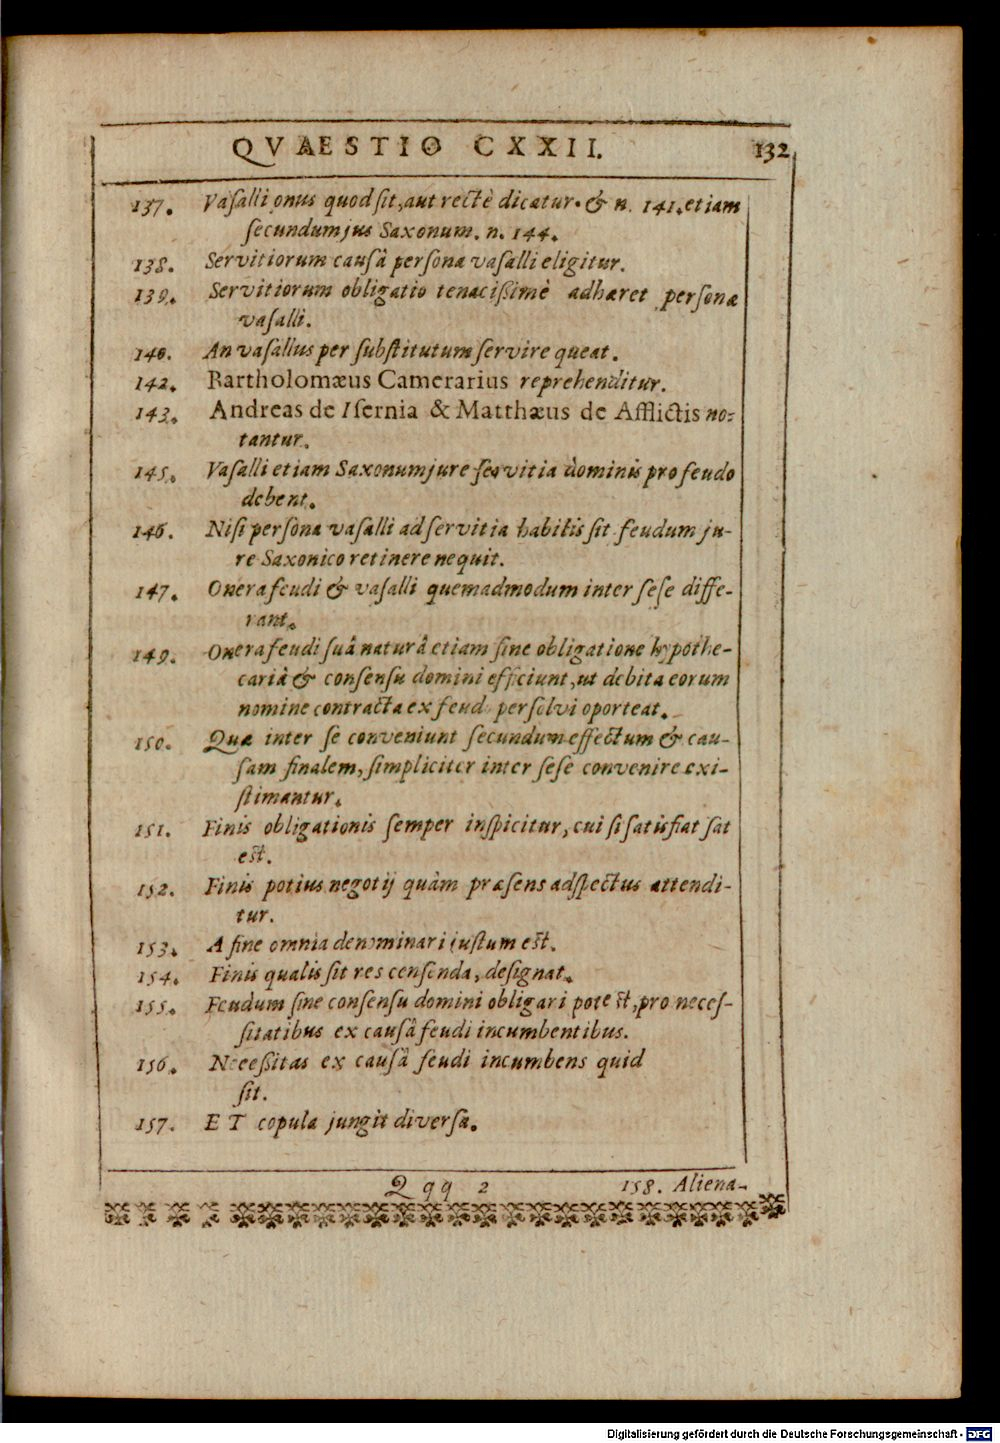 QVAESTIO CXXII. 132
137. Vaſalli onus quod ſit, aut rectè dicatur. & n. 141. etiam
ſecundum jus Saxonum. n. 144.
138. Servitiorum causâ perſona vaſalli eligitur.
139. Servitiorum obligatio tenacißimè adhæret perſonæ
vaſalli.
140. An vaſallus per ſubſtitutum ſervire queat.
142. Bartholomæus Camerarius reprehenditur.
143. Andreas de Iſernia & Matthæus de Afflictis no-
tantur.
145. Vaſalli etiam Saxonum jure ſervitia dominis pro feudo
debent.
146. Niſi perſona vaſalli ad ſervitia habilis ſit feudum ju-
re Saxonico retinere nequit.
147. Onera feudi & vaſalli quemadmodum inter ſeſe diffe-
rant.
149. Onera feudi ſuâ naturâ etiam ſine obligatione hypothe-
cariâ & conſenſu domini efficiunt, ut debita eorum
nomine contracta ex feudo perſolvi oporteat.
150. Quæ inter ſe conveniunt ſecundum effectum & cau-
ſam finalem, ſimpliciter inter ſeſe convenire exi-
ſtimantur.
151. Finis obligationis ſemper inſpicitur, cui ſi ſatisfiat ſat
eſt.
152. Finis potius negotij quàm præſens adſpectus attendi-
tur.
153. A fine omnia denominari juſtum eſt.
154. Finis qualis ſit res cenſenda, deſignat.
155. Feudum ſine conſenſu domini obligari poteſt, pro neceſ-
ſitatibus ex causâ feudi incumbentibus.
156. Neceßitas ex causâ feudi incumbens quid
ſit.
157. ET copula jungit diverſa.
Qqq 2 158. Aliena-
Digitalisierung gefördert durch die Deutsche Forschungsgemeinschaft - DFG